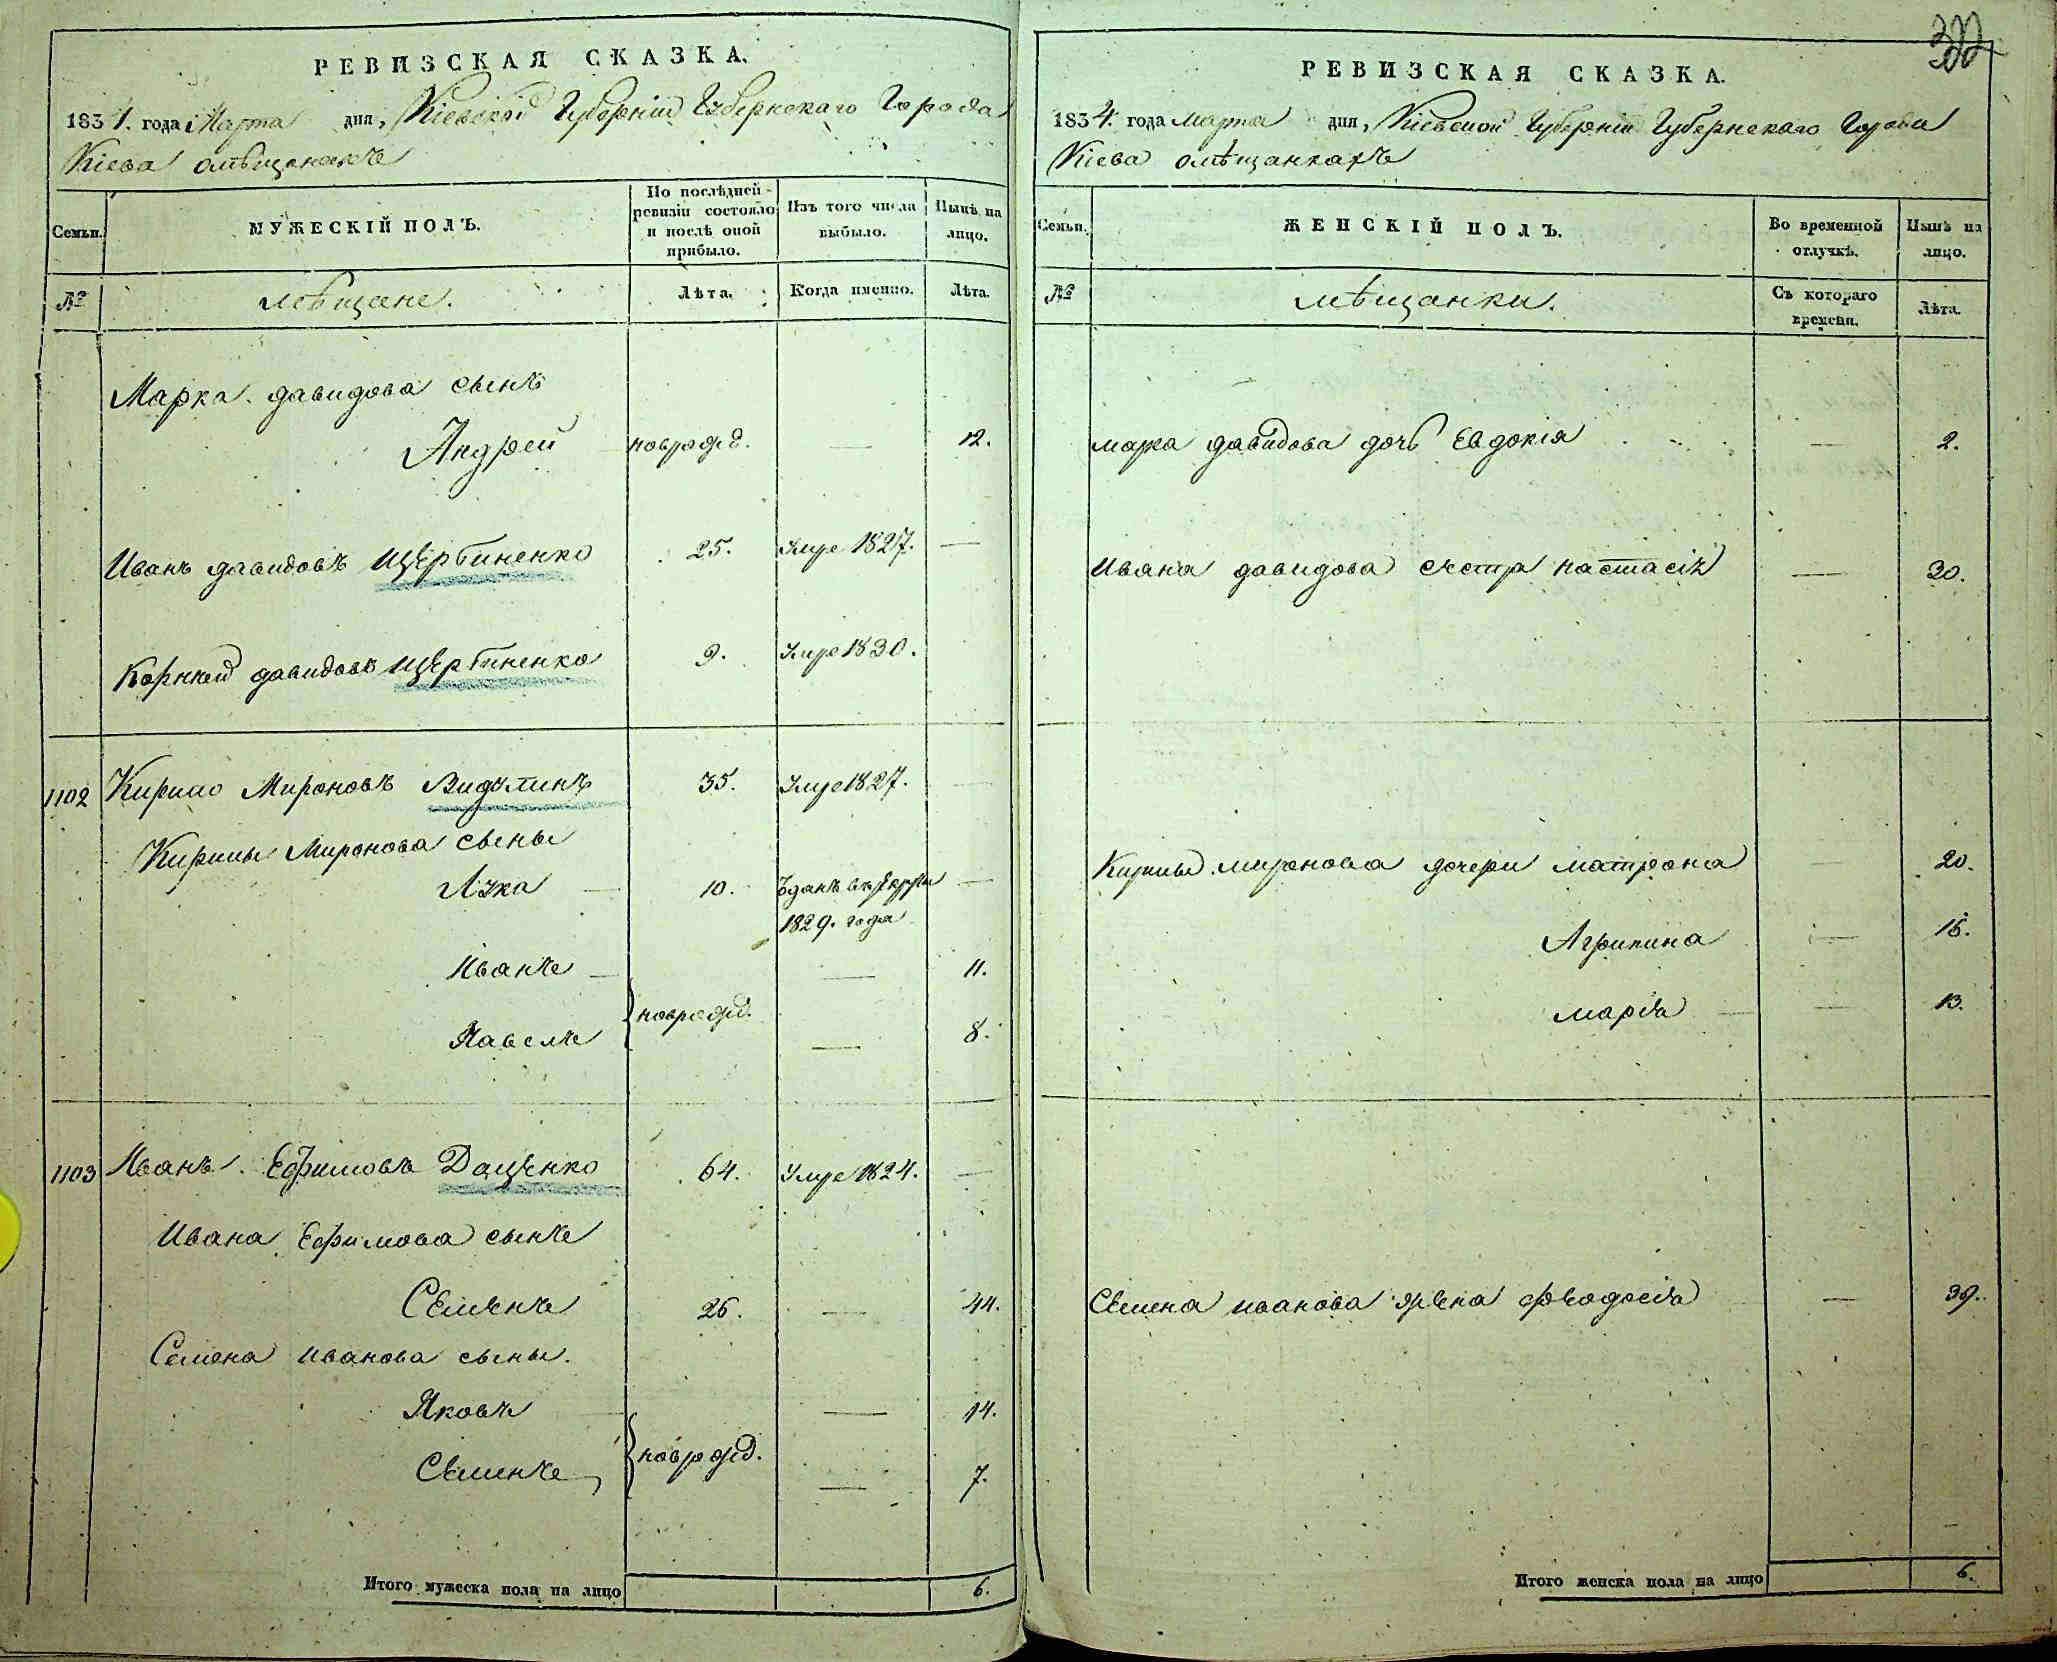 РЕВИЗСКАЯ СКАЗКА.
1834. года Марта дня, Кіевской Губерніи Губернскаго Города
Кіева омѣщанахъ
Семьи.
МУЖЕСКІЙ ПОЛЪ.
По послѣдней ревизіи состояло и послѣ оной прибыло.
Изъ того числа выбыло.
Нынѣ на лицо.
№
мѣщане.
Лѣта.
Когда именно.
Лѣта.
Марка давидова сынъ
Андрей новрожд. — 12.
Иванъ давидовъ Щербиненко 25. Умре 1827. —
Корней давидовъ Щербиненко 9. Умре 1830.
1102 Кирило Мироновъ Видѣминъ 35. Умре 1827.
Кирилы Миронова сыны
Лука — 10. Зданъ въ рекруты —
1829. года
Иванъ — — 11.
новрожд.
Павелъ — 8.
1103 Иванъ Ефимовъ Даценко 64. Умре 1824. —
Ивана Ефимова сынъ
Семенъ 26. — 44.
Семена иванова сыны.
Яковъ — 14.
новрожд.
Семенъ — 7.
Итого мужеска пола на лицо 6.
300
РЕВИЗСКАЯ СКАЗКА.
1834. года марта дня, Кіевской Губерніи Губернскаго Города
Кіева омѣщанкахъ
Семьи.
ЖЕНСКІЙ ПОЛЪ.
Во временной отлучкѣ.
Нынѣ на лицо.
№
мѣщанки.
Съ котораго времени.
Лѣта.
марка давидова дочь Евдокія — 2.
Ивана давидова сестра настасія — 30.
Кирилы миронова дочери матрона — 20.
Агрипина — 16.
марія — 13.
Семена иванова жена феодосія — 39.
Итого женска пола на лицо 6.